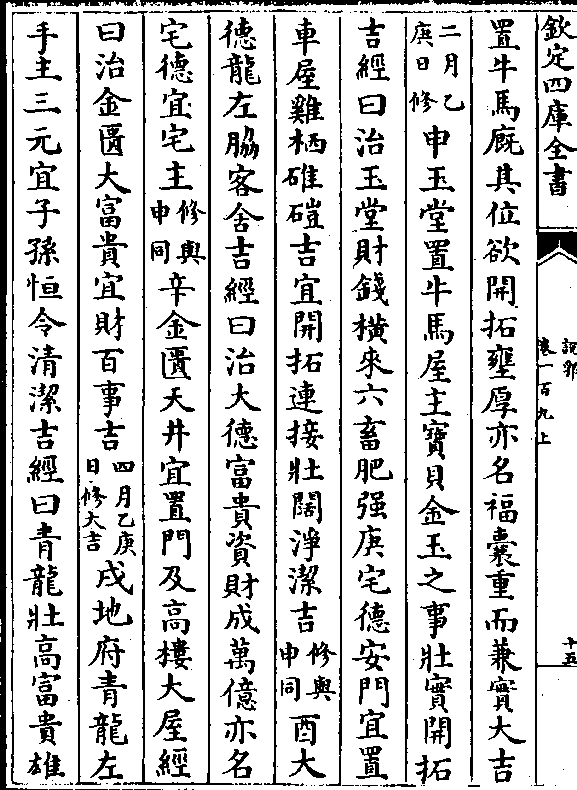 欽定四庫全書
說郛
卷一百九上
十五
置牛馬廐其位欲開拓壅厚亦名福囊重而兼實大吉
二月乙庚日修申玉堂置牛馬屋主寶貝金玉之事壯實開拓
吉經曰治玉堂財錢橫來六畜肥强庚宅德安門宜置
車屋雞栖碓磑吉宜開拓連接壯闊淨潔吉修與申同酉大
德龍左脇客舍吉經曰治大德富貴資財成萬億亦名
宅德宜宅主修與申同辛金匱天井宜置門及高樓大屋經
曰治金匱大富貴宜財百事吉四月乙庚日修大吉戌地府青龍左
手主三元宜子孫恒令清潔吉經曰青龍壯高富貴雄